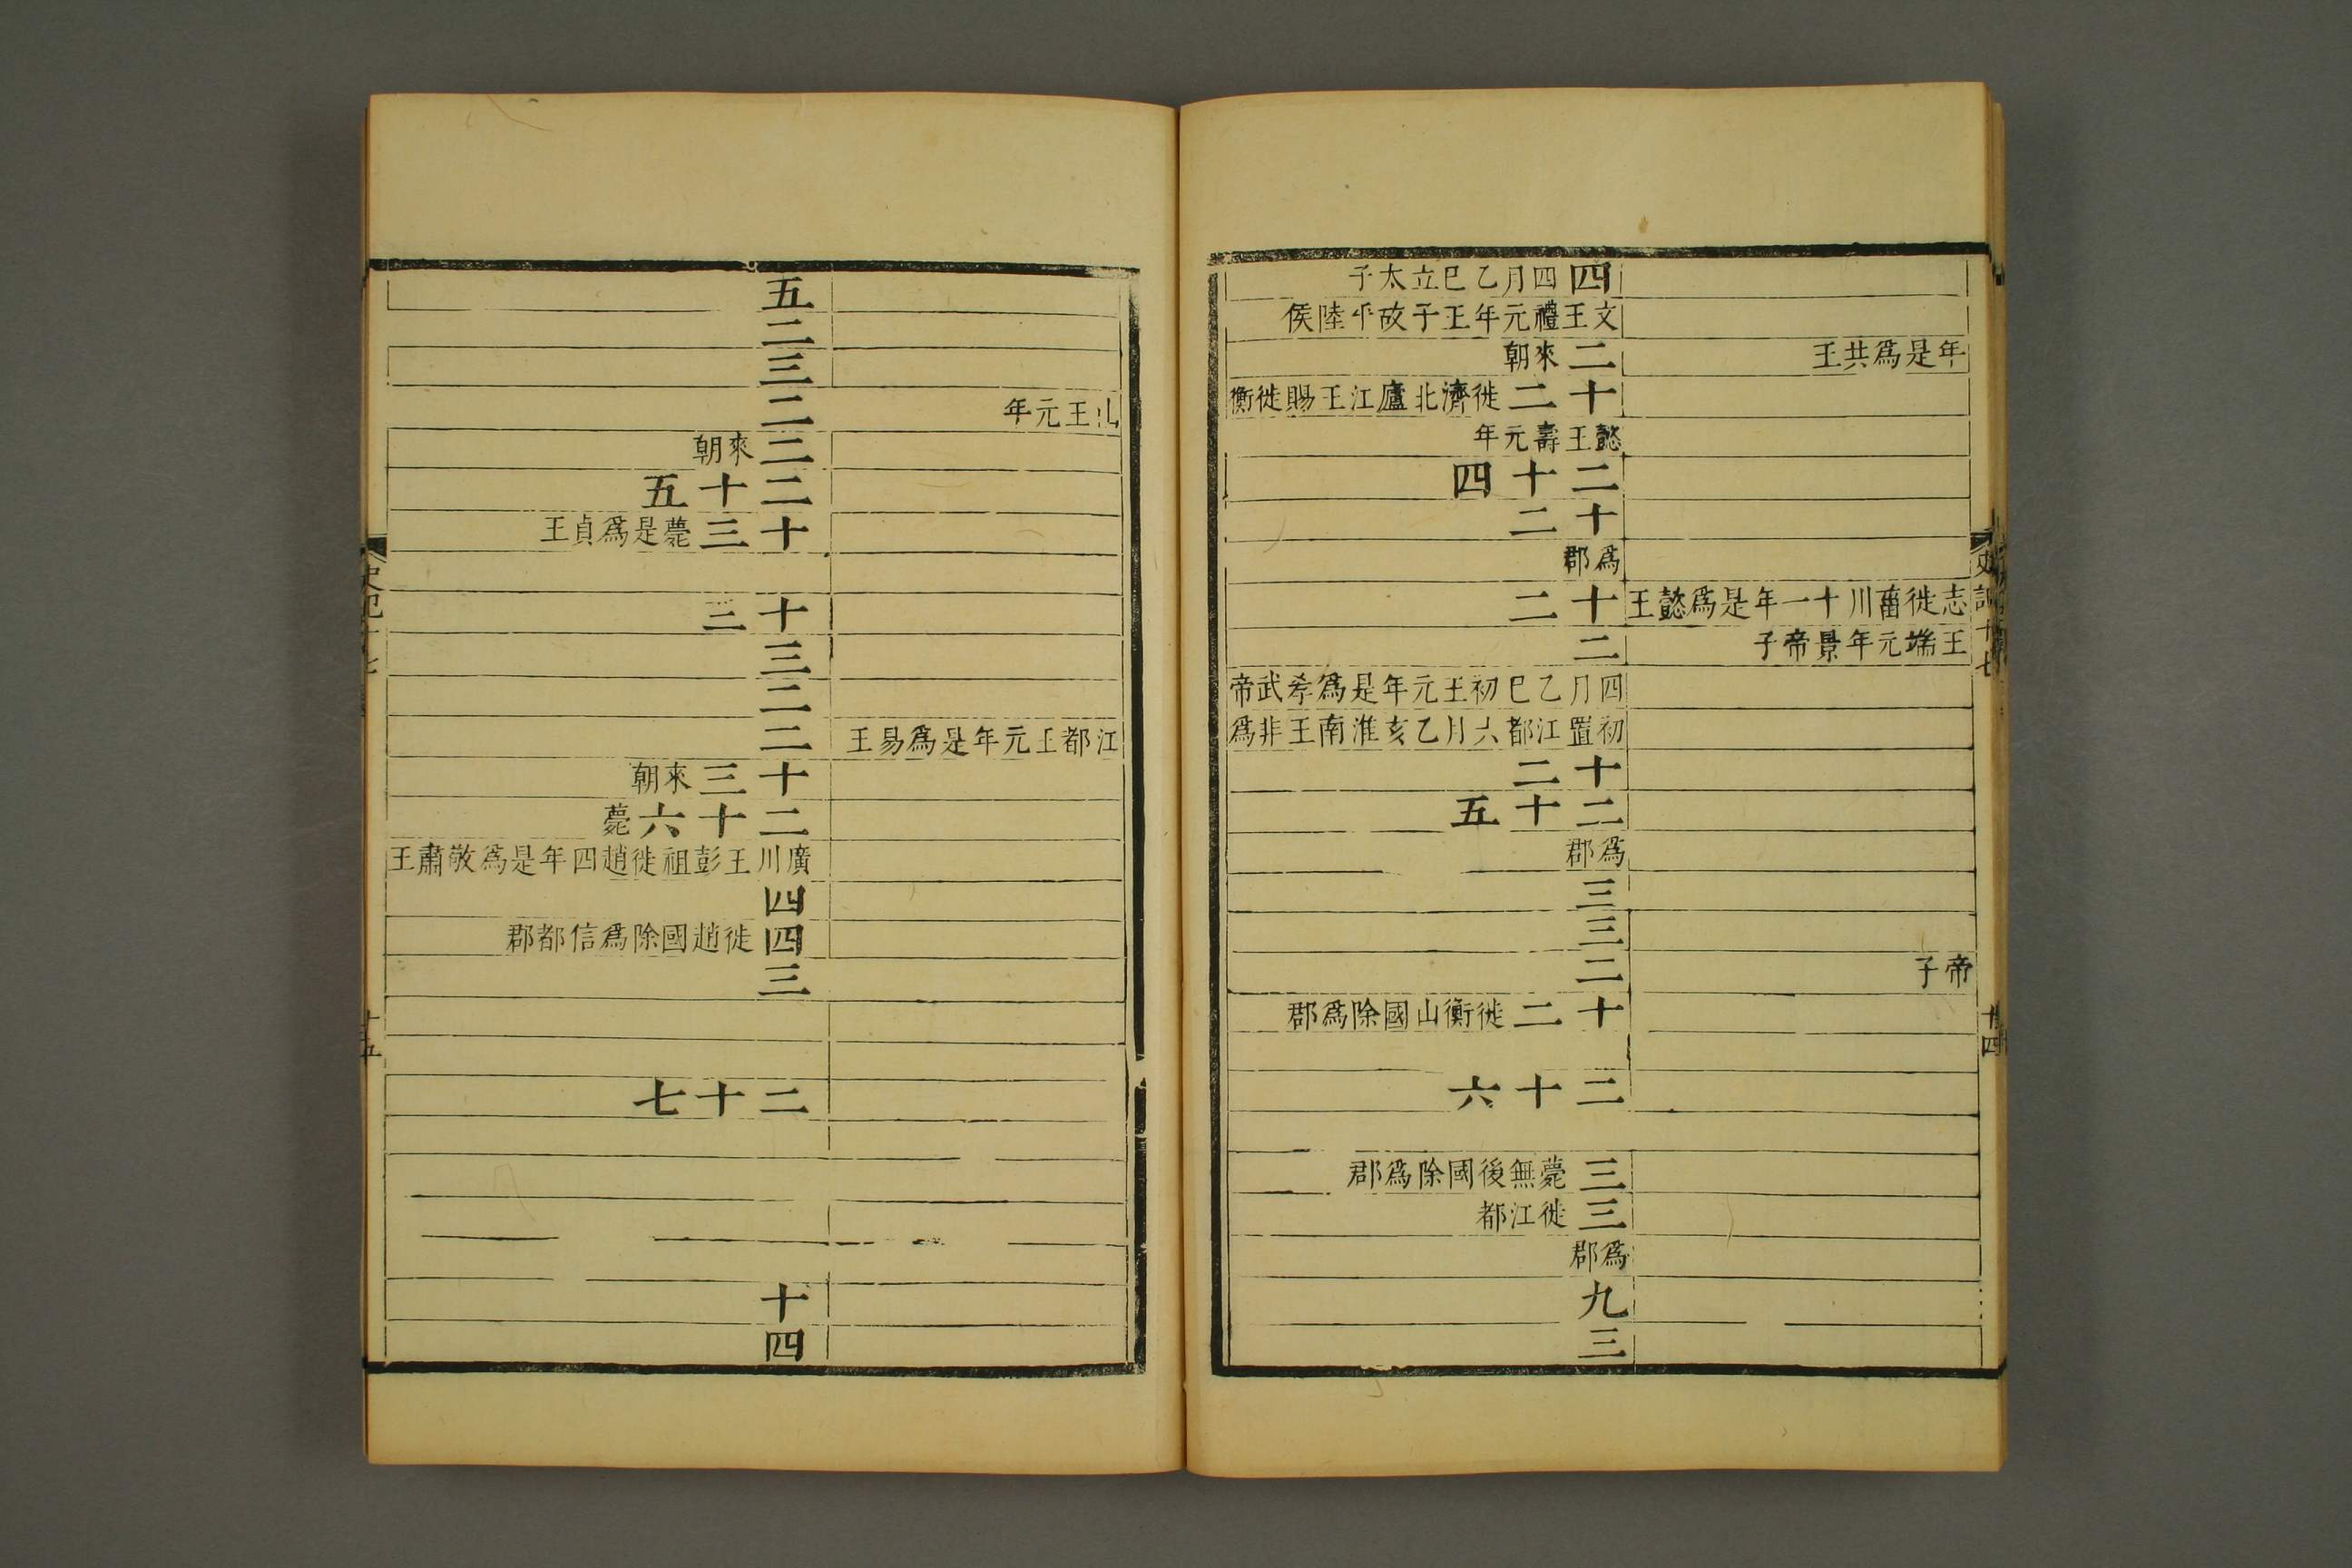 史記十七
十四
年是爲共王
志徙菑川十一年是爲懿王
王端元年景帝子
帝子
四四月乙巳立太子
文王禮元年王子故平陸侯
二來朝
十二徙濟北廬江王賜徙衡
懿王壽元年
二十四
十二
爲郡
十二
二
四月乙巳初王元年是爲孝武帝
初置江都六月乙亥淮南王非爲
十二
二十五
爲郡
三
三
二
十二徙衡山國除爲郡
二十六
三薨無後國除爲郡
三徙江都
爲郡
九
三
山王元年
江都王元年是爲易王
五
二
三
二
二來朝
二十五
十三薨是爲貞王
十三
三
二
二
十三來朝
二十六薨
廣川王彭祖徙趙四年是爲敬肅王
四
四徙趙國除爲信都郡
三
二十七
十
四
十五